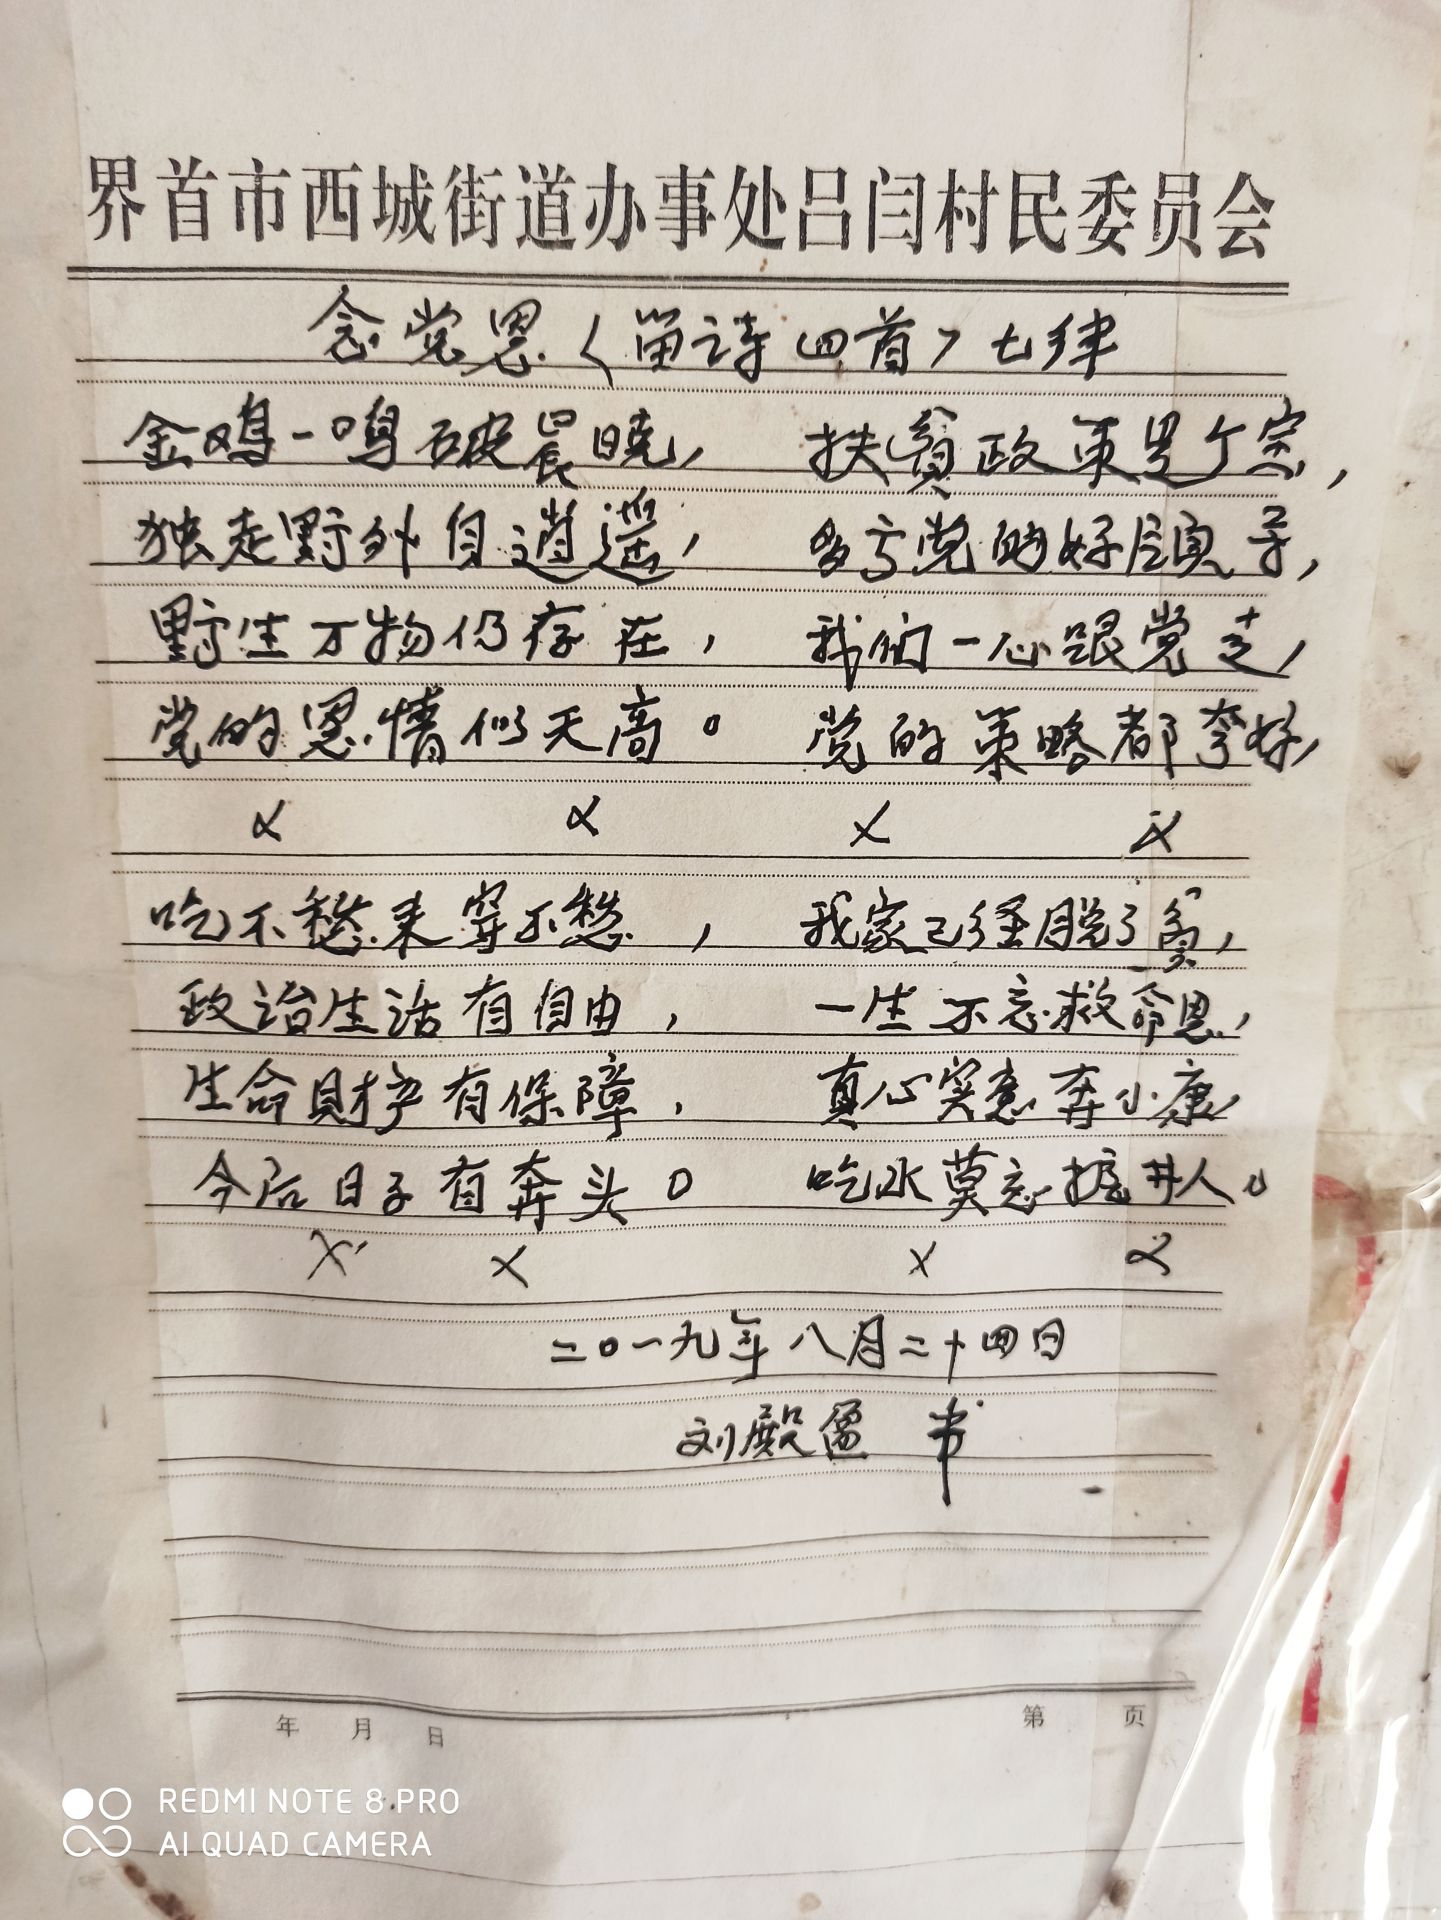 界首市西城街道办事处吕闫村民委员会
念党恩〈留诗四首〉七律
金鸡一鸣破晨晓, 扶贫政策是个宝,
独走野外自逍遥, 多亏党的好领导,
野生万物仍存在, 我们一心跟党走,
党的恩情似天高。 党的策略都夸好,
× × × ×
吃不愁来穿不愁, 我家已经脱了贫,
政治生活有自由, 一生不忘救命恩,
生命财产有保障, 真心实意奔小康,
今后日子有奔头。 吃水莫忘挖井人。
× × × ×
二〇一九年八月二十四日
刘殿 书
年 月 日 第 页
REDMI NOTE 8 PRO
AI QUAD CAMERA